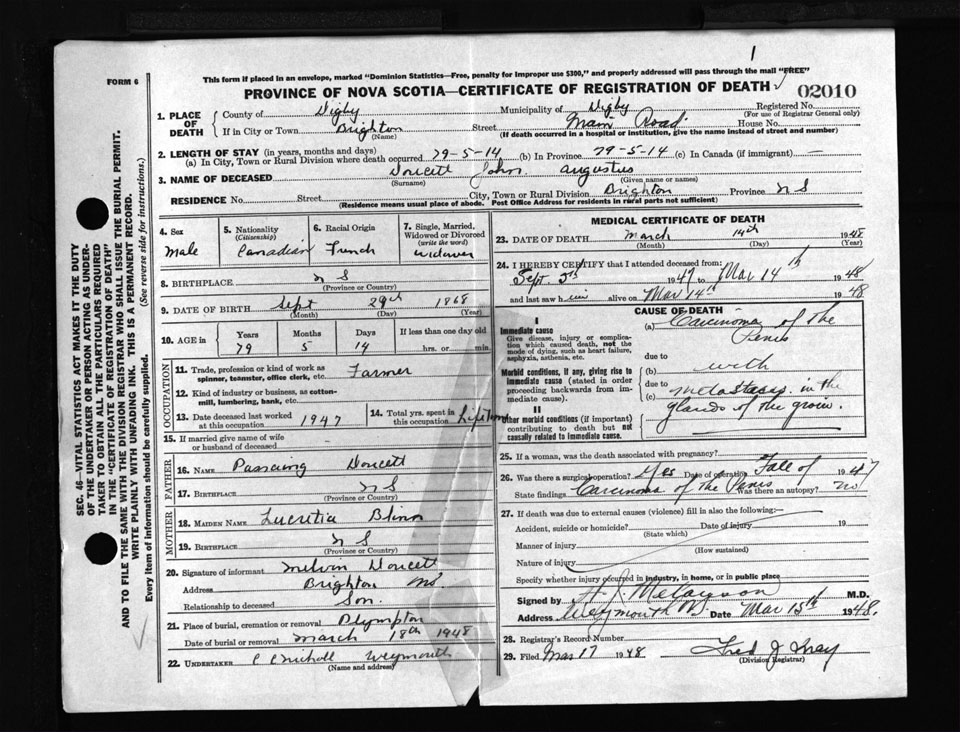 1
FORM 6
This form if placed in an envelope, marked "Dominion Statistics—Free, penalty for improper use $300," and properly addressed will pass through the mail "FREE"
PROVINCE OF NOVA SCOTIA—CERTIFICATE OF REGISTRATION OF DEATH
02010
1. PLACE OF DEATH
County of Digby Municipality of Digby Registered No.
(For use of Registrar General only)
If in City or Town Brighton Street Main Road House No.
(Name) (If death occurred in a hospital or institution, give the name instead of street and number)
2. LENGTH OF STAY (in years, months and days)
(a) In City, Town or Rural Division where death occurred 79-5-14 (b) In Province 79-5-14 (c) In Canada (if immigrant) —
3. NAME OF DECEASED Doucett John Augustus
(Surname) (Given name or names)
RESIDENCE No. Street City, Town or Rural Division Brighton Province N S
(Residence means usual place of abode. Post Office Address for residents in rural parts not sufficient)
4. Sex Male
5. Nationality (Citizenship) Canadian
6. Racial Origin French
7. Single, Married, Widowed or Divorced (write the word) Widower
8. BIRTHPLACE N S
(Province or Country)
9. DATE OF BIRTH Sept 29th 1868
(Month) (Day) (Year)
10. AGE in Years 79 Months 5 Days 14 If less than one day old hrs. or min.
OCCUPATION
11. Trade, profession or kind of work as spinner, teamster, office clerk, etc. Farmer
12. Kind of industry or business, as cotton-mill, lumbering, bank, etc.
13. Date deceased last worked at this occupation 1947
14. Total yrs. spent in this occupation Lifetime
15. If married give name of wife or husband of deceased
FATHER
16. NAME Doucett
17. BIRTHPLACE N S
(Province or Country)
MOTHER
18. MAIDEN NAME Lucretia Blinn
19. BIRTHPLACE N S
(Province or Country)
20. Signature of informant Melvin Doucett
Address Brighton NS
Relationship to deceased Son.
21. Place of burial, cremation or removal Plympton
Date of burial or removal March 18th 1948
22. UNDERTAKER Weymouth
(Name and address)
MEDICAL CERTIFICATE OF DEATH
23. DATE OF DEATH March 14th 1948
(Month) (Day) (Year)
24. I HEREBY CERTIFY that I attended deceased from:
Sept. 1947 to Mar 14th 1948
and last saw him alive on Mar 14th 1948
CAUSE OF DEATH
I
Immediate cause
Give disease, injury or complication which caused death, not the mode of dying, such as heart failure, asphyxia, asthenia, etc.
(a) Carcinoma of the Penis
due to
Morbid conditions, if any, giving rise to immediate cause (stated in order proceeding backwards from immediate cause).
(b) with
due to
(c) metastases in the glands of the groin.
II
Other morbid conditions (if important) contributing to death but not causally related to immediate cause.
25. If a woman, was the death associated with pregnancy?
26. Was there a surgical operation? Yes Date of operation Fall of 1947
State findings Carcinoma of the Penis Was there an autopsy? no
27. If death was due to external causes (violence) fill in also the following:—
Accident, suicide or homicide? Date of injury 19
(State which)
Manner of injury
(How sustained)
Nature of injury
Specify whether injury occurred in industry, in home, or in public place
Signed by M.D.
Address Weymouth N.S. Date Mar 15th 1948.
28. Registrar's Record Number
29. Filed Mar 17 1948 Fred J
(Division Registrar)
SEC. 46—VITAL STATISTICS ACT MAKES IT THE DUTY
OF THE UNDERTAKER OR PERSON ACTING AS UNDER-
TAKER TO OBTAIN ALL THE PARTICULARS REQUIRED
IN THE "CERTIFICATE OF REGISTRATION OF DEATH"
AND TO FILE THE SAME WITH THE DIVISION REGISTRAR WHO SHALL ISSUE THE BURIAL PERMIT.
WRITE PLAINLY WITH UNFADING INK. THIS IS A PERMANENT RECORD.
Every item of information should be carefully supplied. (See reverse side for instructions.)